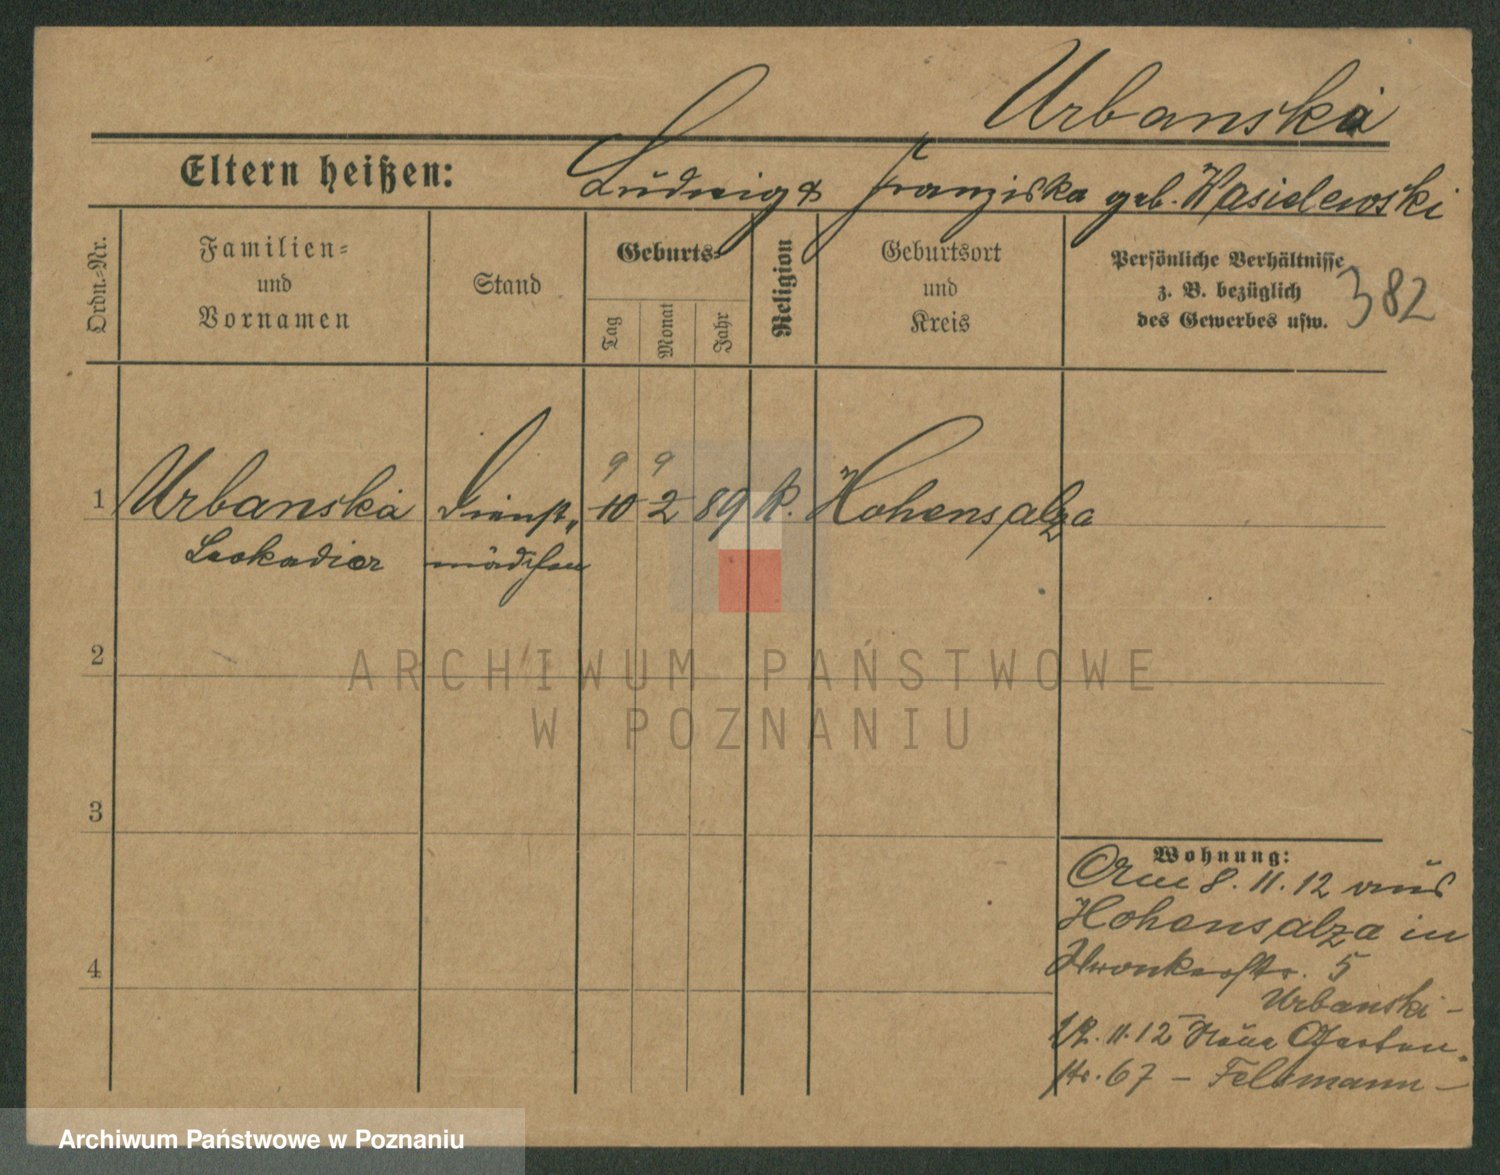 Urbanska
Eltern heißen: Ludwig & Franziska geb. Wasielewski
Ordn.-Nr.
Familien-
und
Vornamen
Stand
Geburts-
Tag
Monat
Jahr
Religion
Geburtsort
und
Kreis
Persönliche Verhältnisse
z. B. bezüglich
des Gewerbes usw.
382
9 9
1 Urbanska Dienst„ 10 2 89 k. Hohensalza
Leokadia mädchen
2
ARCHIWUM PAŃSTWOWE
W POZNANIU
3
Wohnung:
8. 11. 12 aus
Hohensalza in
Wronkerstr. 5
Urbanski –
11. 12 Neue Garten
str. 67 – Feldmann –
4
Archiwum Państwowe w Poznaniu